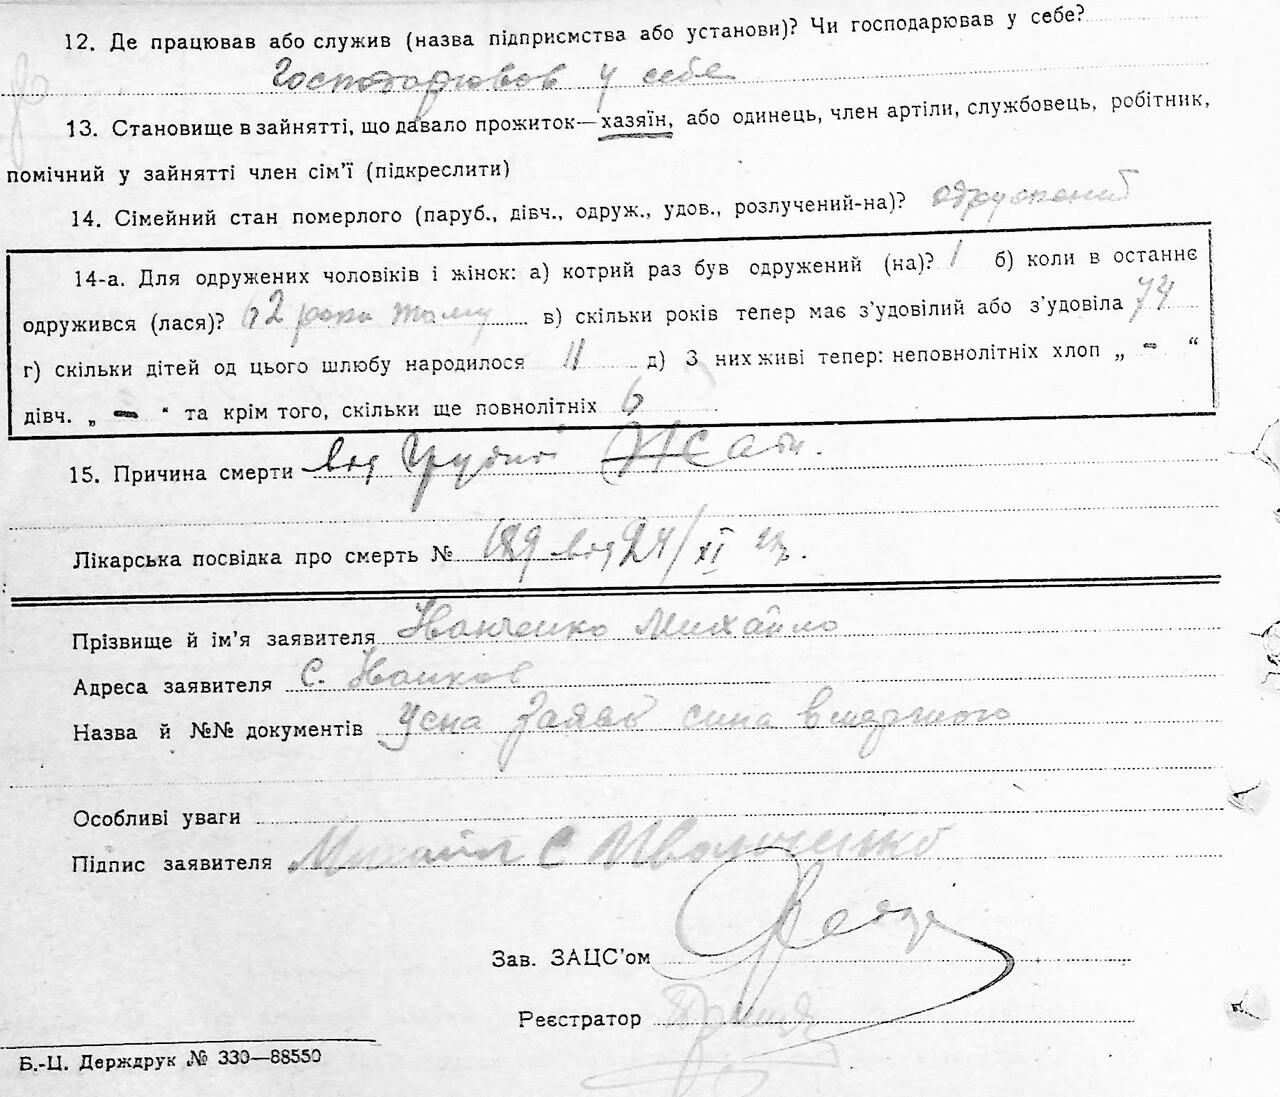 12. Де працював або служив (назва підприємства або установи)? Чи господарював у себе?
Господарював у себе
13. Становище в зайнятті, що давало прожиток—хазяїн, або одинець, член артіли, службовець, робітник,
помічний у зайнятті член сім’ї (підкреслити)
14. Сімейний стан померлого (паруб., дівч., одруж., удов., розлучений-на)? одружений
14-а. Для одружених чоловіків і жінок: а) котрий раз був одружений (на)? 1 б) коли в останнє
одружився (лася)? 62 роки тому в) скільки років тепер має з’удовілий або з’удовіла 74
г) скільки дітей од цього шлюбу народилося 11 д) З них живі тепер: неповнолітніх хлоп „ - “
дівч. „ - “ та крім того, скільки ще повнолітніх 6
15. Причина смерти від грудної жаби.
Лікарська посвідка про смерть № 189 від 24/XI
Прізвище й ім’я заявителя Іванченко Михайло
Адреса заявителя с. Іванков
Назва й №№ документів Усна заява сина вмершого
Особливі уваги
Підпис заявителя Михайл С
Зав. ЗАЦС’ом
Реєстратор
Б.-Ц. Держдрук № 330—88550